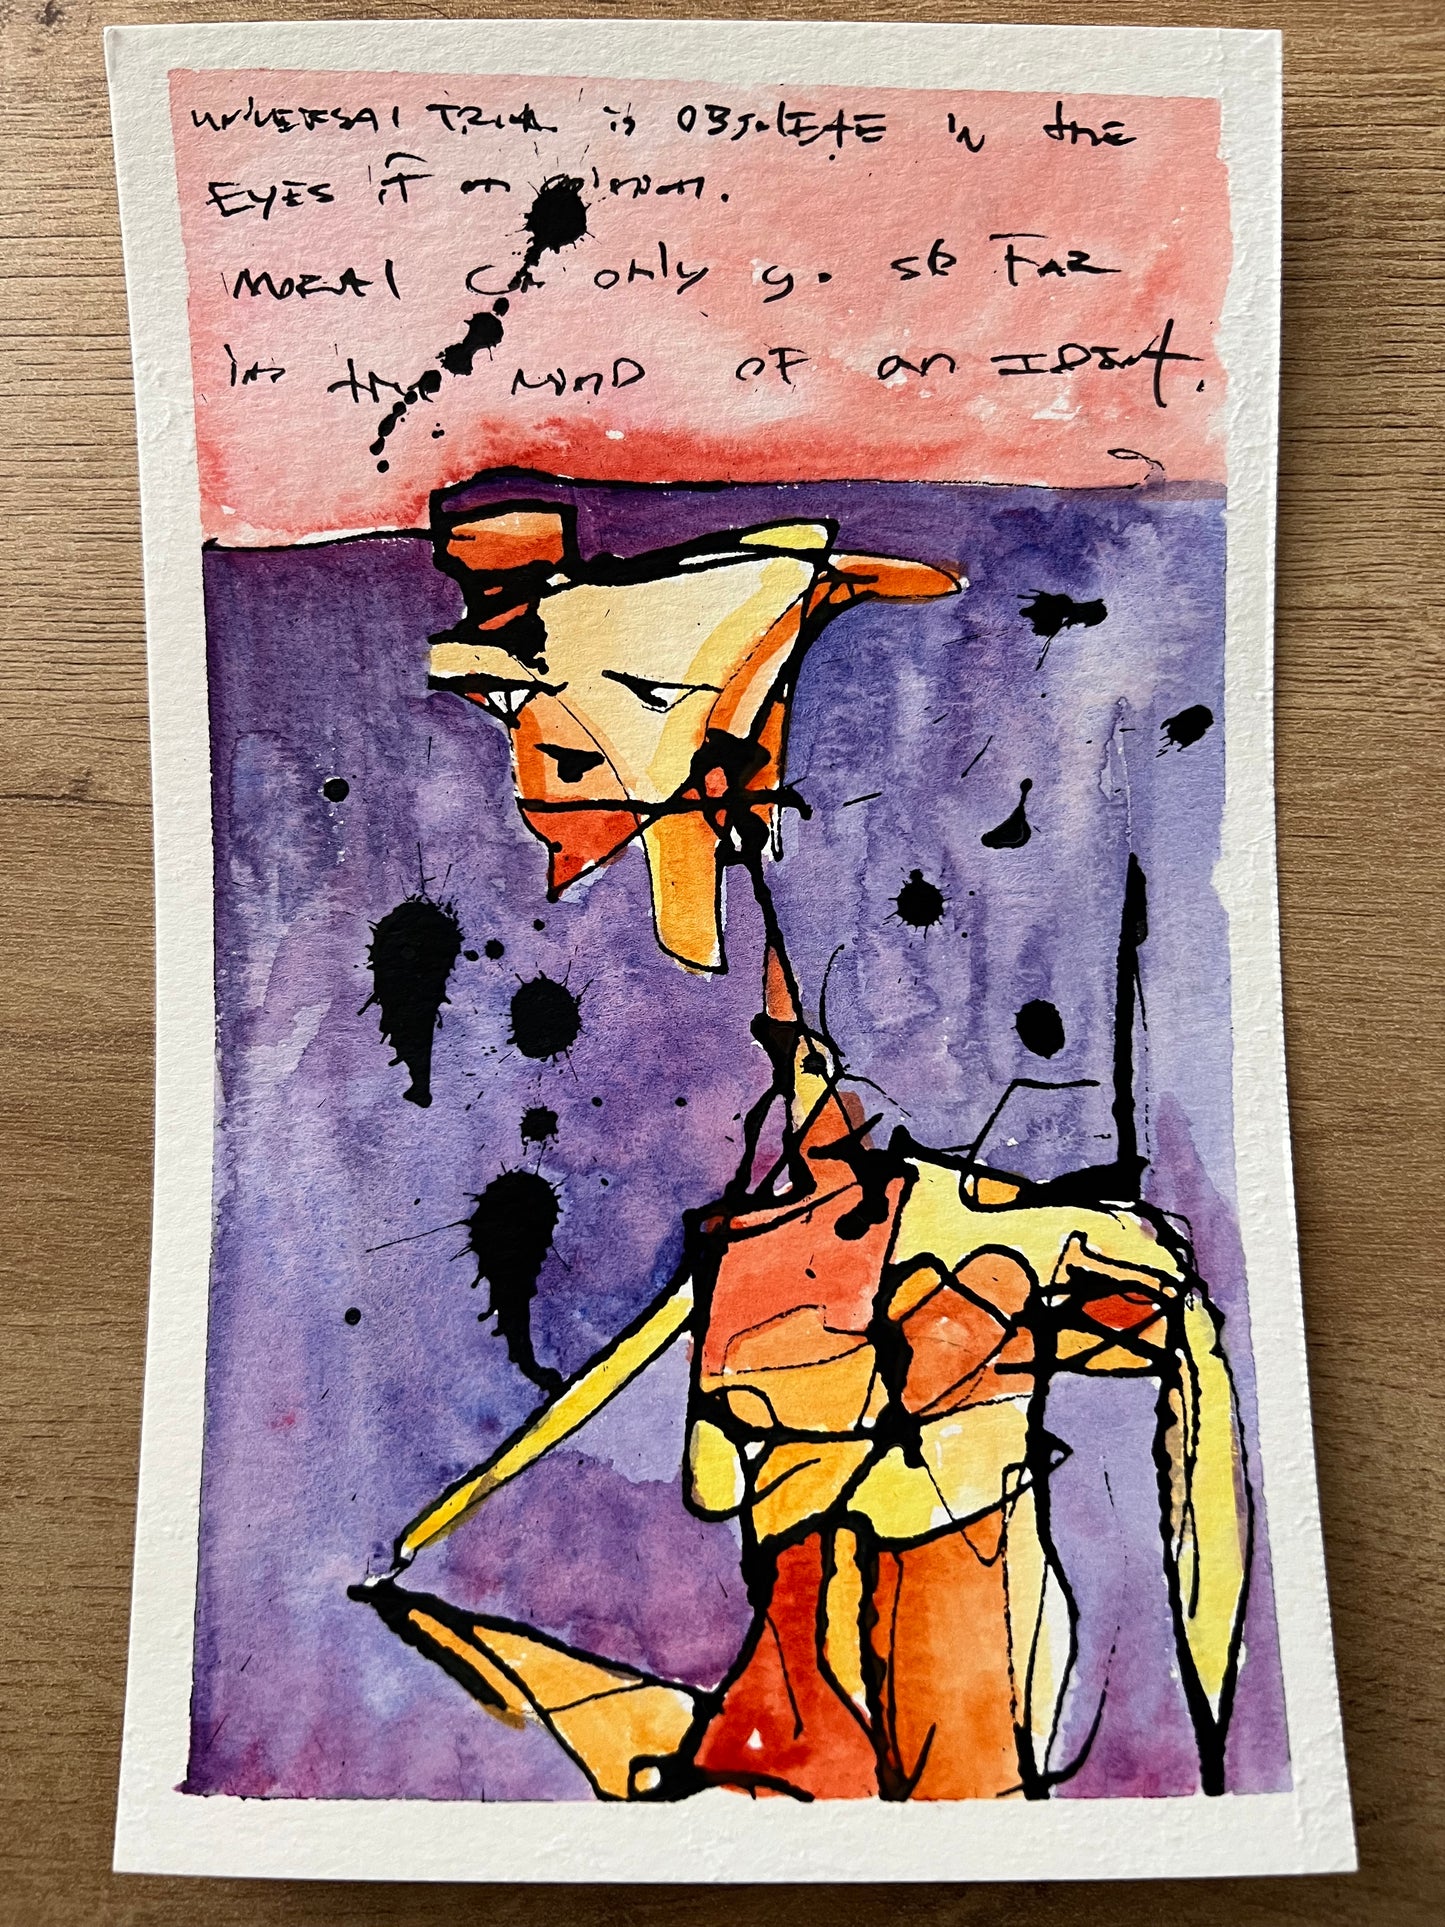 UNIVERSAL TRIAL is OBSOLETE IN the
EYES of an opinion.
MORAL can only go so FAR
into the MIND OF an IDIOT.